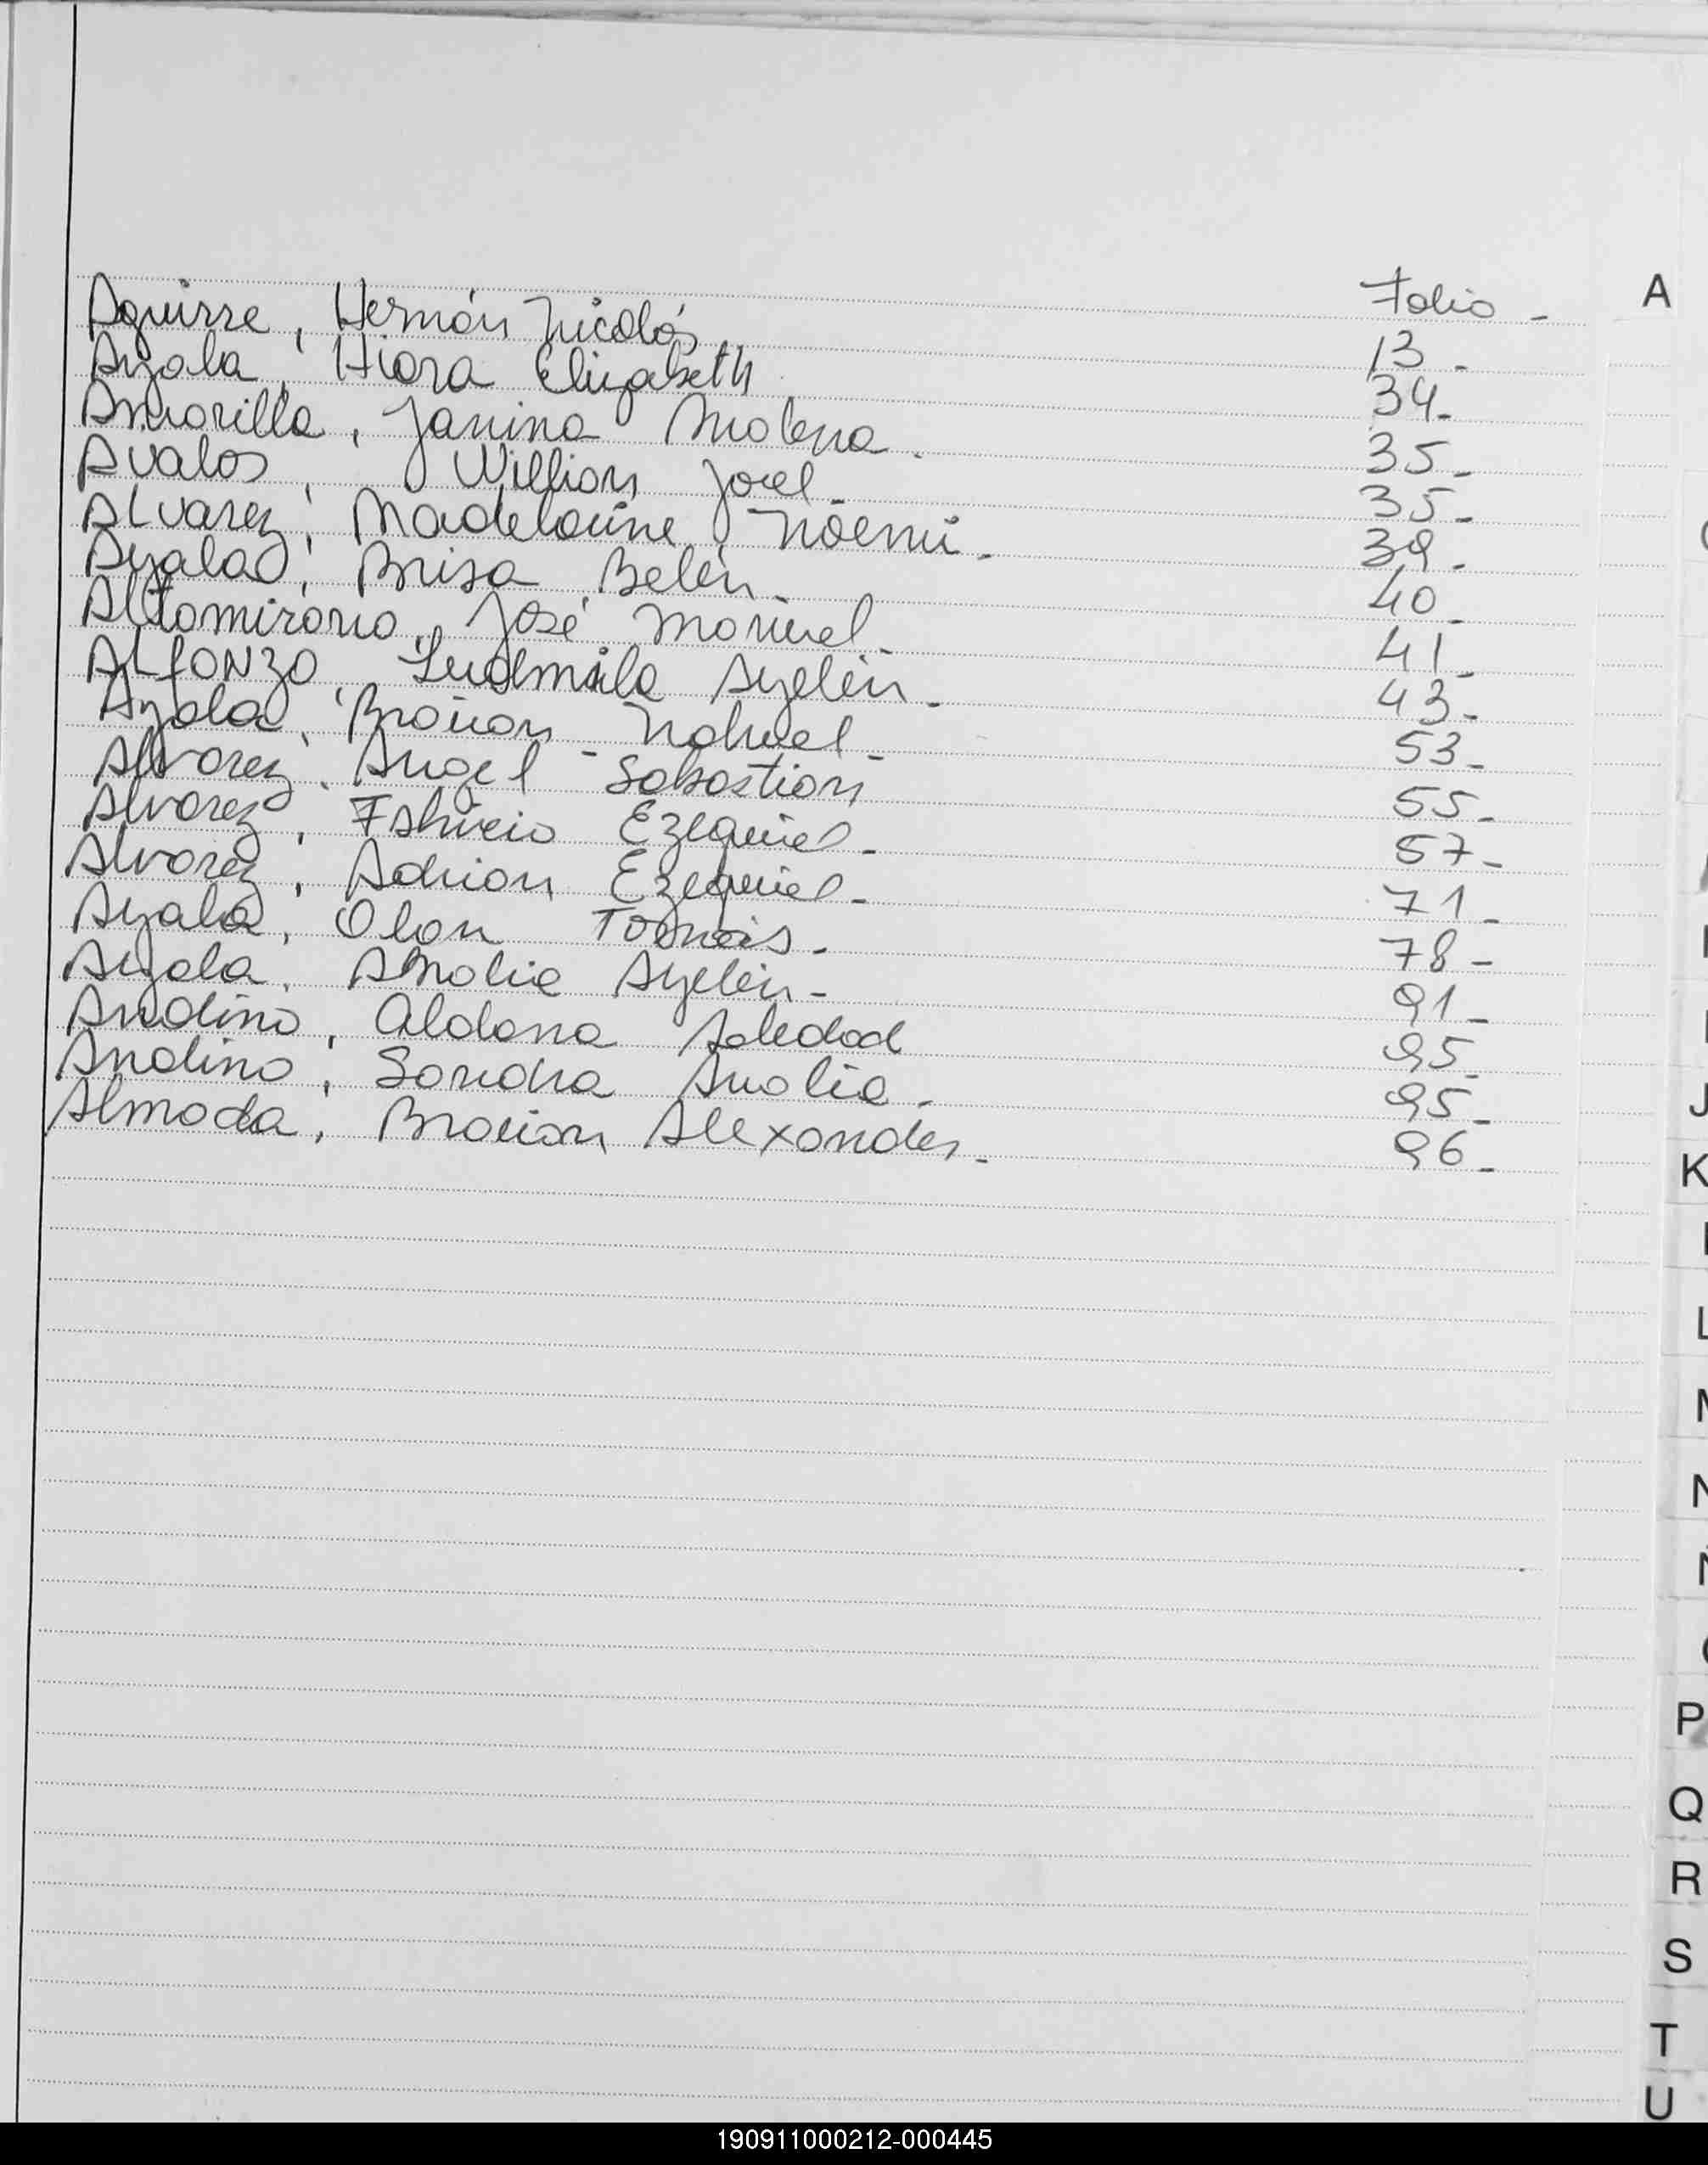 Folio - A
Aguirre, Hernán Nicolás 13-
Ayala, Hiara Elizabeth 34-
Amarilla, Janina Malena. 35-
Avalos, Willian Joel- 35-
Alvarez, Madelaine Noemi- 39-
Ayala, Brisa Belén- 40-
Altamirano, José Manuel- 41-
ALfONZO, Ludmila Ayelén- 43-
Ayala, Braian Nahuel- 53-
Alvarez, Angel - Sabastian 55-
Alvarez, Fabricio Ezequiel- 57-
Alvarez, Adrian Ezequiel- 71-
Ayala, Olan Tomás- 78-
Ayala, Amalia Ayelén- 91-
Andino, Aldana Soledad 95-
Andino, Sandra Analia- 95-
Almada, Braian Alexander- 96-
J
K
L
M
N
Ñ
P
Q
R
S
T
U
190911000212-000445